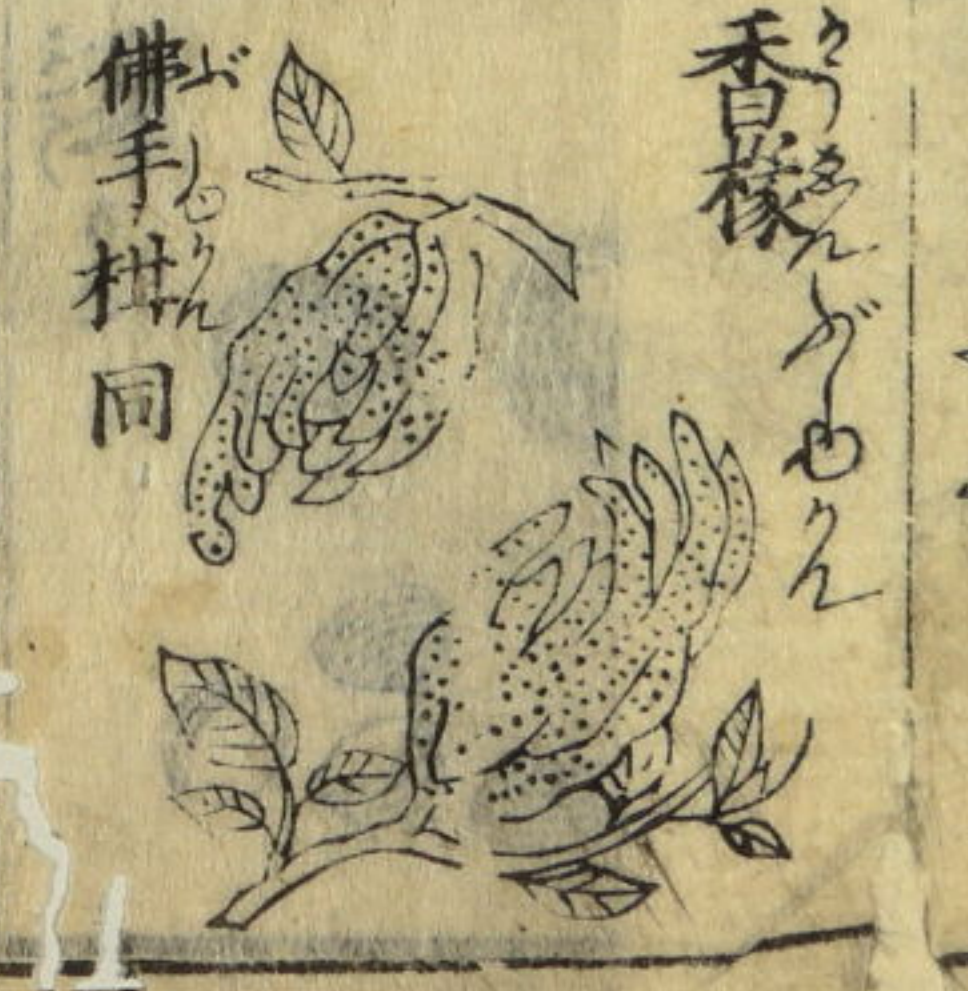 香椽
かうゑんぶしゆかん
佛手柑同
ぶしゆかん